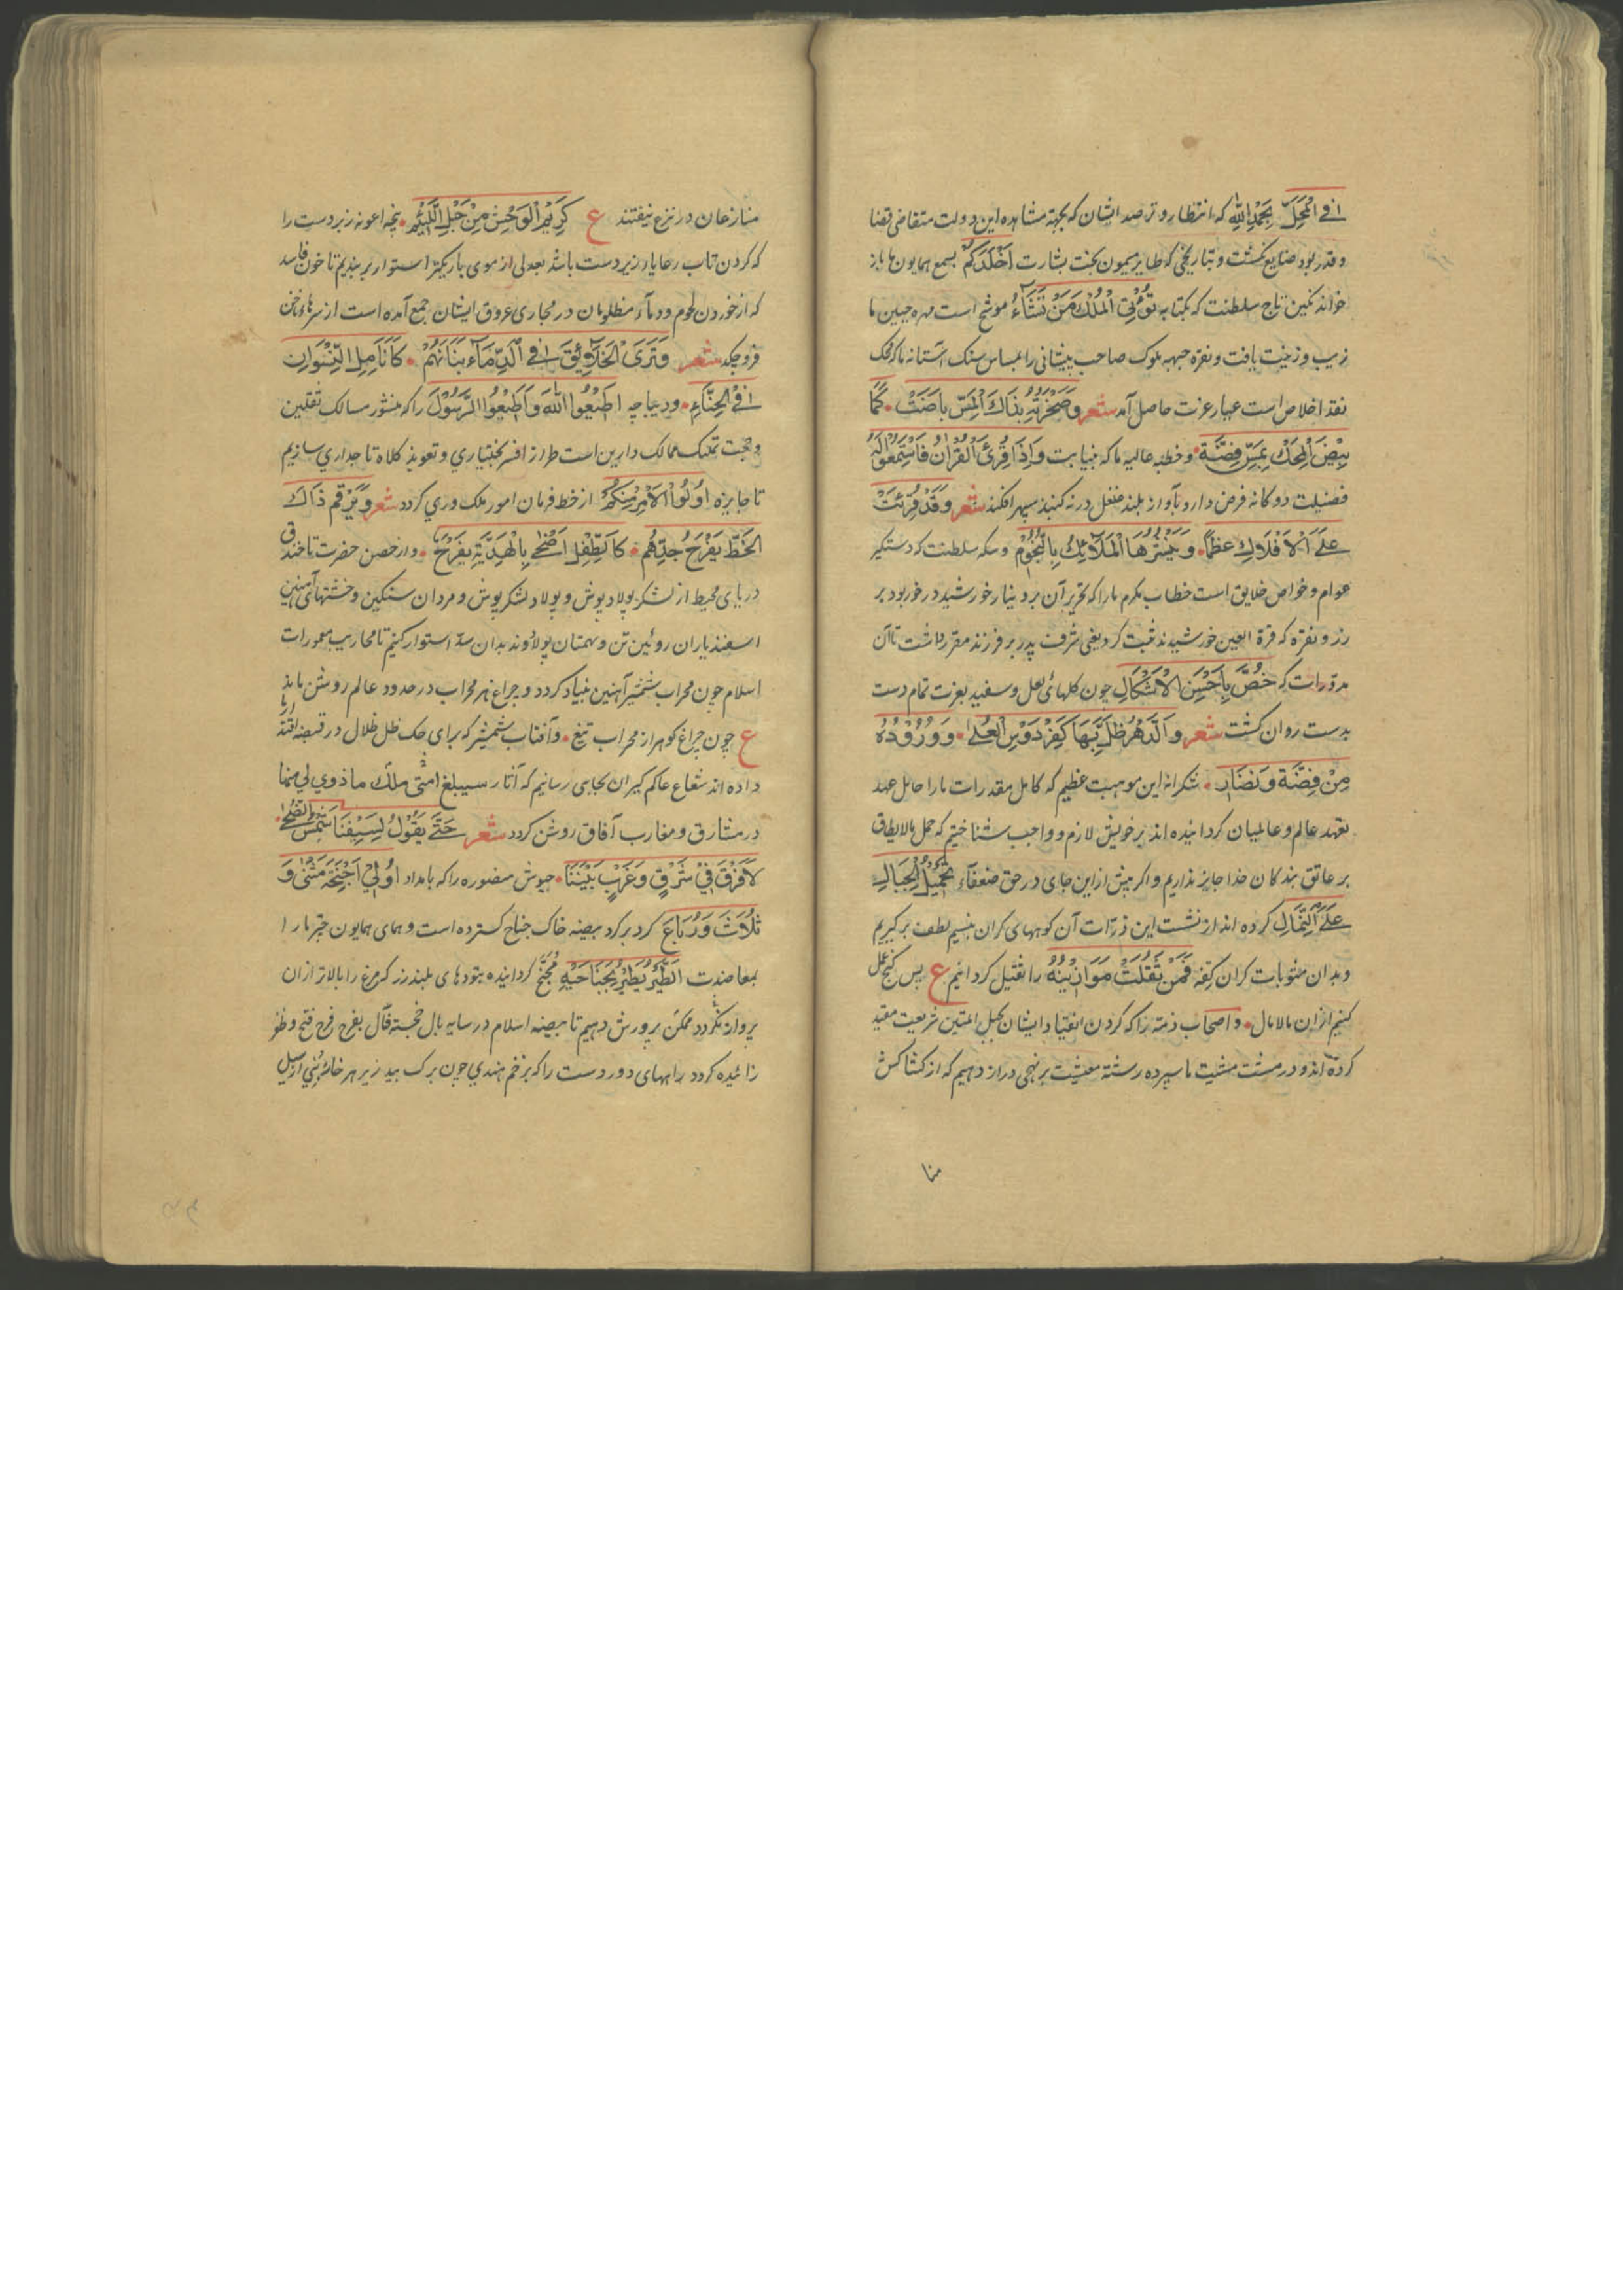 فی المحل بحمد الله که انتظار و ترصد ایشان که بجهة مشاهده این دولت متقاضی قضا
و قدر بود ضایع نکشت و بتاریخی که طایر میمون بخت بشارت بسمع همایون ما باز
خواند نکین تاج سلطنت که بکتابه تُؤْتِی الْمُلْكَ مَنْ تَشَاءُ موشح است مهره جبین ما
زیب و زینت یافت و نقره جبهه ملوک صاحب پیشانی را بمساس سنک آستانه ما که محک
نقد اخلاص است عیار عزت حاصل آمد شعر وصخرته بذاك المس باضت • كما
بیض المحك بمس فضة • و خطبه عالیه ما که بنیابت وَإِذَا قُرِئَ الْقُرْآنُ فَاسْتَمِعُوا لَهُ
فضیلت دوکانه فرض دارد بآواز بلند غلغل در نه کنبد سپهر افکند شعر وقد قرئت
علی الافلاك عظما • وینثرها الملائك بالنجوم و سکه سلطنت که دستگیر
عوام و خواص خلایق است خطاب مکرم ما را که تحریر آن بر دینار خورشید در خور بود بر
زر و نقره که قرة العین خورشیدند ثبت کرد یعنی شرف پدر بر فرزند مقرر داشت تا آن
مدورات که خص باحسن الاشکال چون کلهائی لعل و سفید بعزت تمام دست
بدست روان کشت شعر والدهر ظل بها کفردوس العلی • ووروده
من فضة ونضار • شکرانه این موهبت عظیم که کامل مقدرات ما را حامل عهد
تعهد عالم و عالمیان کردانیده اند بر خویش لازم و واجب شناختیم که حمل مالایطاق
بر عاتق بندکان خدا جایز نداریم و اکر پیش از این جای در حق ضعفاء تحمیل الجبال
علی النمال کرده اند از نشست این ذرات آن کوههای کران بنسیم لطف برکیریم
و بدان مثوبات کران کفه فَمَنْ ثَقُلَتْ مَوَازِینُهُ را ثقیل کردانیم ع پس کنج عمل
کنیم ازان مالامال • و اصحاب ذمه را که کردن انقیاد ایشان بحبل المتین شریعت مقید
کرده اند و در مشت مشیت ما سپرده رشته معیشت بر نهجی دراز دهیم که از کشاکش
منا
منازعان در نزع نیفتند ع کریم الوحش من حبل اللئیم • پنجه اعونه زبردست را
که کردن تاب رعایا و زیردست باشد بعدلی از موی باریکتر استوار بر بندیم تا خون فاسد
که از خوردن لحوم و دماء مظلومان در مجاری عروق ایشان جمع آمده است از سرهاء ناخن
فرو چکد شعر وتری الخلائق فی الدماء بنانهم • کانامل النسوان
فی الحناء • و دیباچه اطیعوا الله واطیعوا الرسول را که منشور مسالک ثقلین
و حجت تملیک ممالک دارین است طراز افسر بختیاری و تعویذ کلاه تاجداری سازیم
تا جایزه اولوا الامر منکم از خط فرمان امور ملک وری کردد شعر ویرقم ذاك
الخط یفرح جدهم • کالطفل اضحی بالهدیة یفرح • و از حصن حضرت تا خندق
دریای محیط از لشکر پولادپوش و پولاد لشکرپوش و مردان سنکین و خشتهای آهنین
اسفندیاران روئین تن و بهمتان پولادوند بدان سد استوار کنیم تا محاریب معمورات
اسلام چون محراب شمشیر آهنین بنیاد کردد و چراغ هر محراب در حدود عالم روشن ماند
ع چون چراغ کوهر از محراب تیغ • و آفتاب شمشیر که برای حک ظل ظلال در قبضه اقتدار ما
داده اند شعاع عالم کیر ان بجایی رسانیم که آثار سیبلغ امتی ملک ما ذوی لی منها
در مشارق و مغارب آفاق روشن کردد شعر حتی یقول لسیفنا شمس الضحی •
لافرق فی شرق وغرب بیننا • جیوش منصوره را که بامداد اُولِی أَجْنِحَةٍ مَثْنَی وَ
ثُلَاثَ وَرُبَاعَ کرد بر کرد بیضه خاک جناح کسترده است و همای همایون چتر ما را
بمعاضدت الطیر یطیر بجناحیه مجنح کردانیده بتودهای بلند زر که مرغ را بالاتر ازان
پرواز نکردد ممکن پرورش دهیم تا بیضه اسلام در سایه بال خجسته فال بفرح فرخ فتح و ظفر
زائیده کردد راههای دوردست را که بزخم هندی چون برک بید زیر هر خائر بنی